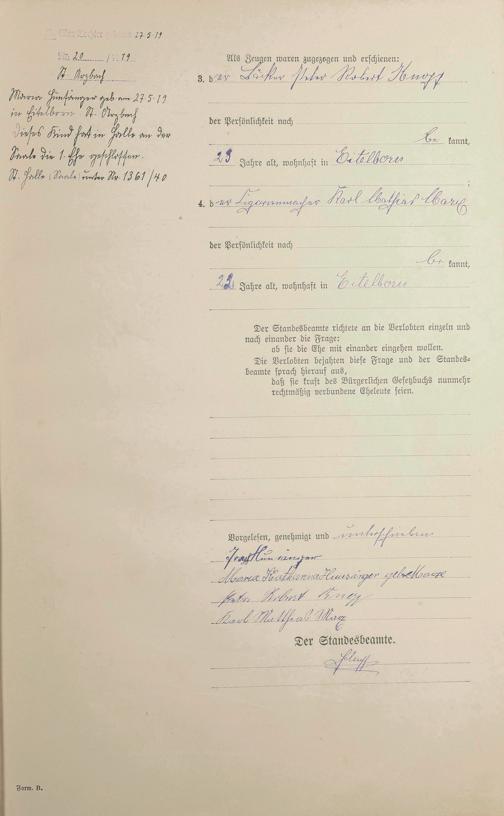 geboren 27.5.19
20 / 1919
St. Arzbach
Maria Hunsänger geb am 27.5.19
in Eitelborn St. Arzbach
dieses Kind hat in Halle an der
Saale die 1. Ehe geschlossen.
St. Halle (Saale) unter Nr. 1361/40
Als Zeugen waren zugezogen und erschienen:
3. der Bäcker Peter Robert Knopp
der Persönlichkeit nach
be kannt,
23 Jahre alt, wohnhaft in Eitelborn
4. der Zigarrenmacher Karl Mathias Marx
der Persönlichkeit nach
be kannt,
22 Jahre alt, wohnhaft in Eitelborn
Der Standesbeamte richtete an die Verlobten einzeln und
nach einander die Frage:
ob sie die Ehe mit einander eingehen wollen.
Die Verlobten bejahten diese Frage und der Standes-
beamte sprach hierauf aus,
daß sie kraft des Bürgerlichen Gesetzbuchs nunmehr
rechtmäßig verbundene Eheleute seien.
Vorgelesen, genehmigt und unterschrieben
Hunsänger
Maria Katharina Hunsänger geb. Marx
Peter Robert Knopp
Karl Matthias Marx
Der Standesbeamte.
Form. B.